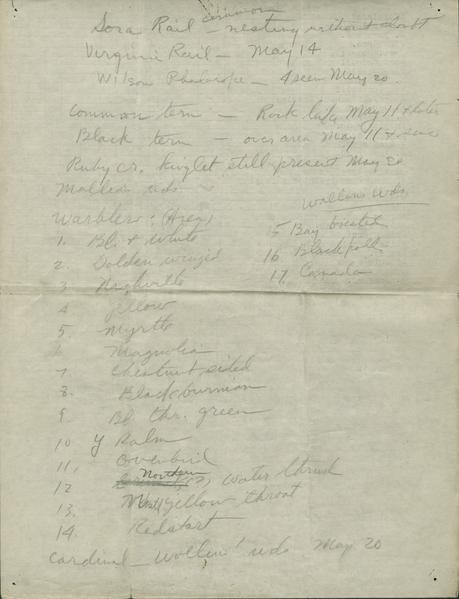 common
Sora Rail - nesting without doubt
Virginia Rail - May 14
Wilson Phalarope - 4 seen May 20.
Common tern - Rock lake, May 11 & later
Black tern - over area May 11 & since
Ruby cr. kinglet still present May 20
wds.
Warblers:
1. Bl. & White
2. Golden winged
3. Nashville
4 Yellow
5 Myrtle
6 Magnolia
7. Chestnut sided
8. Blackburnian
9. Bl. thr. green
10 Y Palm
11. Ovenbird
Northern
12 (?) Water thrush
13. Yellow throat
14. Redstart
wds.
15 Bay breasted
16 Blackpoll
17. Canada
Cardinal - wds May 20